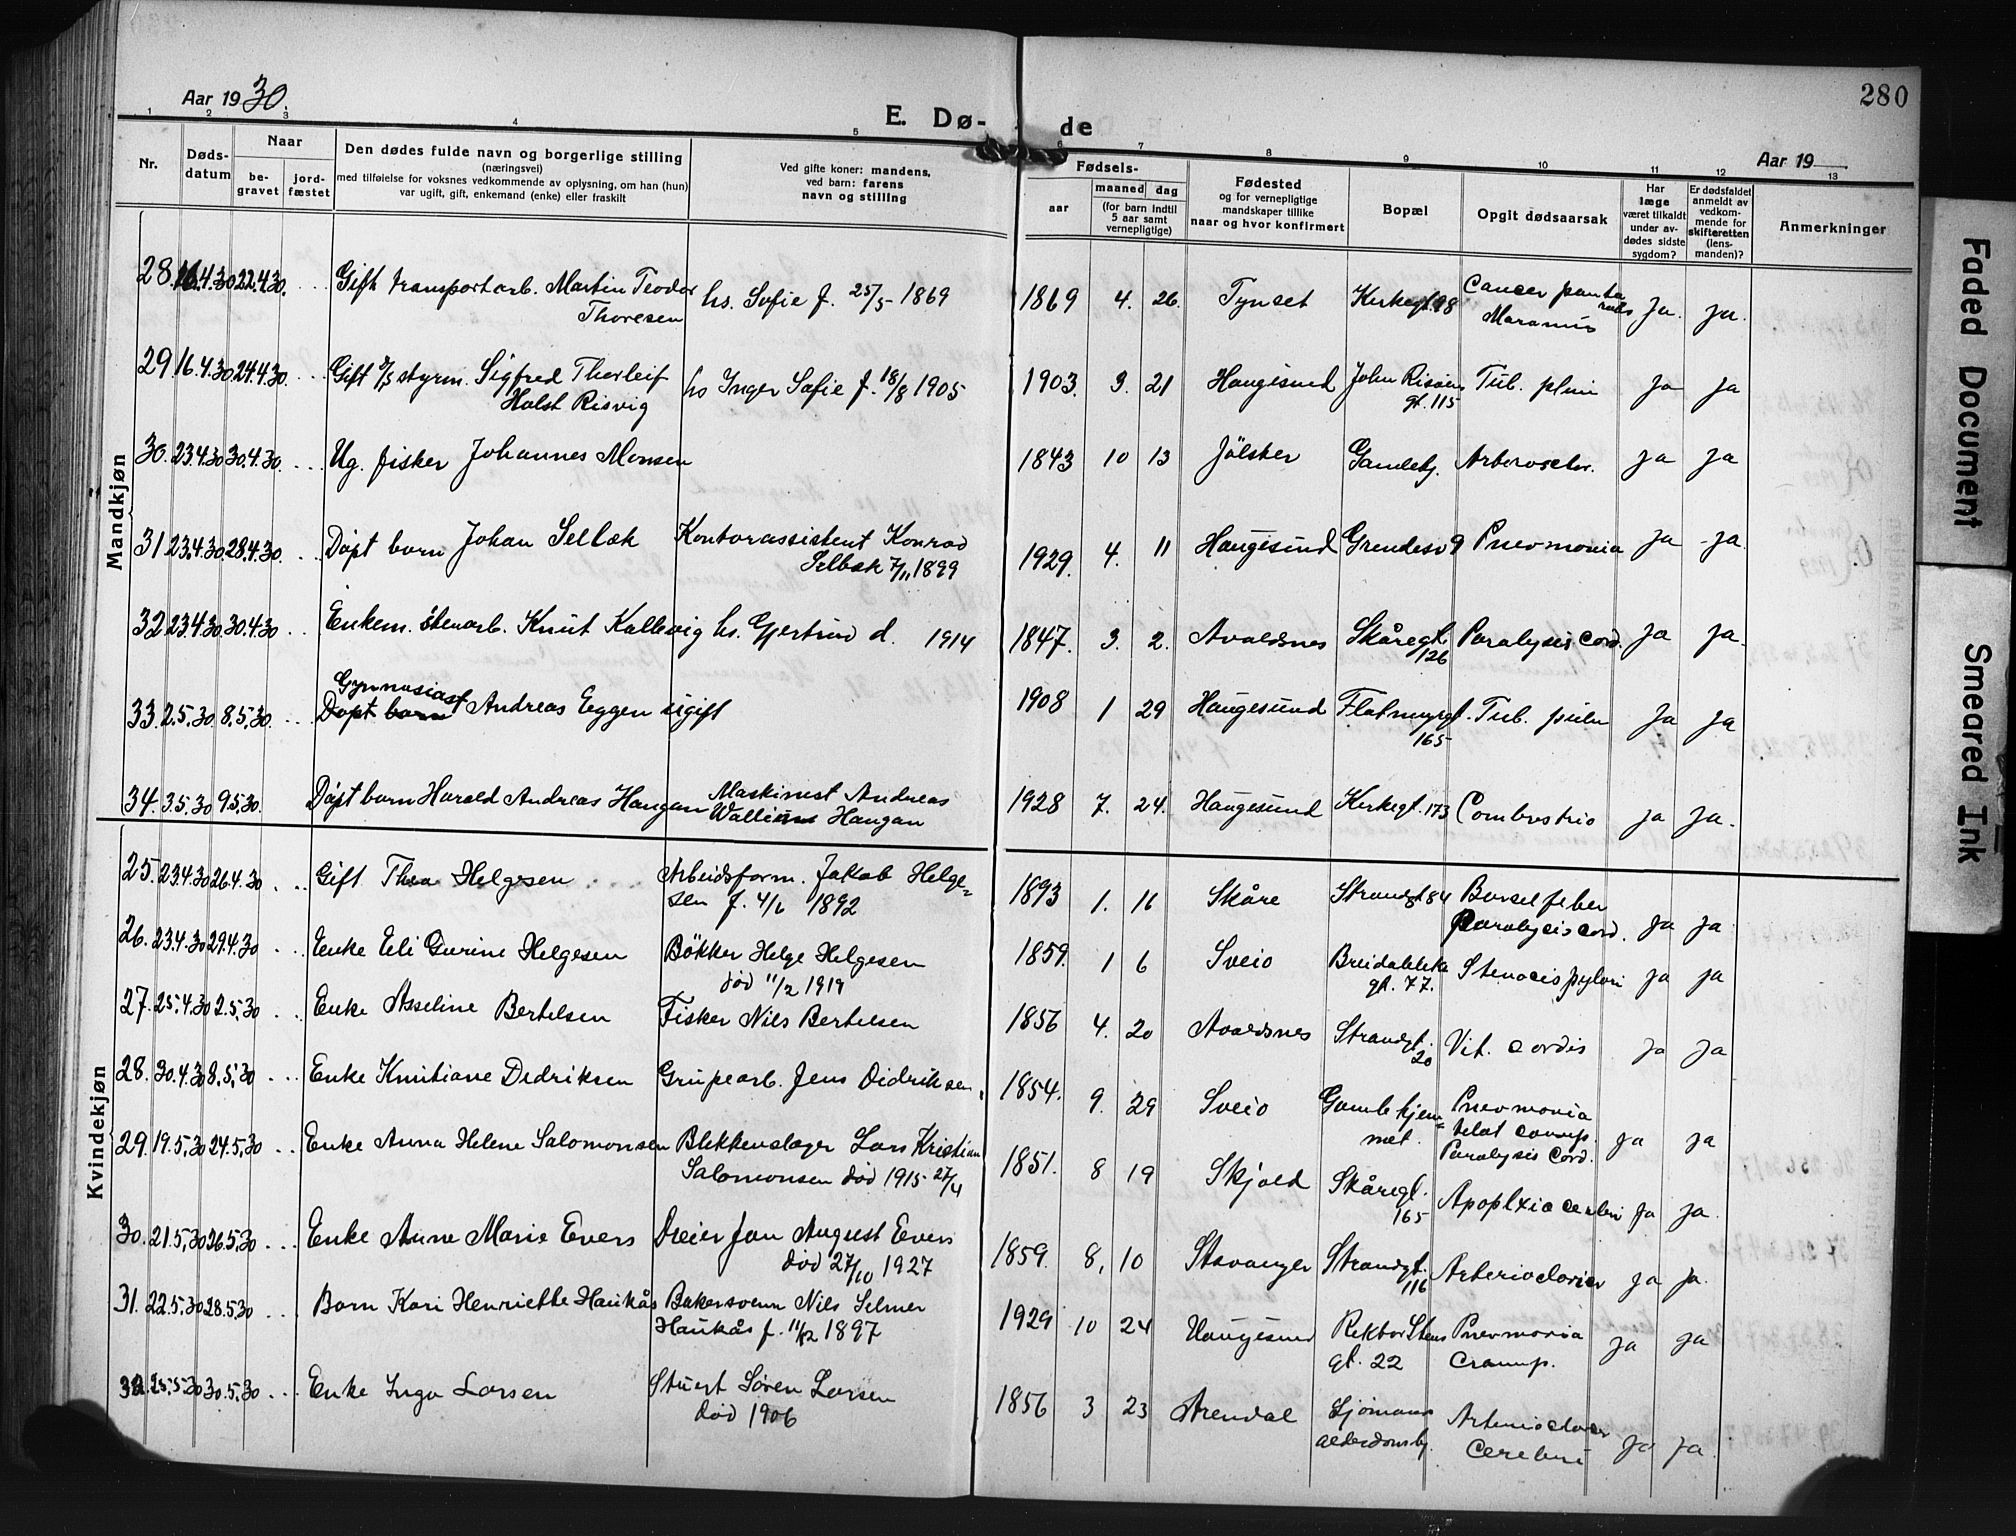 280
Aar 1930.
E. Dø- de
Aar 19
1 2 3 4 5 6 7 8 9 10 11 12 13
Nr.
Døds-
datum
Naar
be-
gravet
jord-
fæstet
Den dødes fulde navn og borgerlige stilling
(næringsvei)
med tilføielse for voksnes vedkommende av oplysning, om han (hun)
var ugift, gift, enkemand (enke) eller fraskilt
Ved gifte koner: mandens,
ved barn: farens
navn og stilling
Fødsels-
aar
maaned dag
(for barn indtil
5 aar samt
vernepligtige)
Fødested
og for vernepligtige
mandskaper tillike
naar og hvor konfirmert
Bopæl
Opgit dødsaarsak
Har
læge
været tilkaldt
under av-
dødes sidste
sygdom?
Er dødsfaldet
anmeldt av
vedkom-
mende for
skifteretten
(lens-
manden)?
Anmerkninger
Mandkjøn
28. 16.4.30 22.4.30. ... Gift transportarb. Martin Teodor hs. Sofie f. 25/5 1869 1869 4. 26. Tynset Kirkegt. 98 Cancer Ja. ja.
Thoresen Marasmus
29 16.4.30 24.4.30 ... Gift styrm. Sigfred Thorleif hs Inger Sofie f. 18/8 1905 1903. 3. 21 Haugesund John Risøens Tub. pulm Ja ja
Holst Risvig gt. 115
30. 23.4.30 30.4.30. ... Ug. fisker Johannes Monsen 1843 10 13 Jölster Gamlehj. Arterosclor. ja ja
31 23.4.30 28.4.30 ... Döpt barn Johan Selbæk Kontorassistent Konrad 1929. 4. 11 Haugesund 9 Pnevmonia ja ja
Selbæk 7/11 1899
32 23.4.30 30.4.30 ... Enkem. stenarb. Knut Kallevig hs. Gjertrud d. 1914 1847. 3. 2. Avaldsnes Skåregt. Paralysis cord. ja ja.
126
Gymnasiast
33. 2.5.30 8.5.30 ... Döpt barn Andreas Eggen ugift 1908 1 29 Haugesund Flotmyrgt. Tub. pulm Ja ja
165
34. 3.5.30 9.5.30. Döpt barn Harald Andreas Haugan Maskinist Andreas 1928 7. 24. Haugesund Kirkegt. 173 Combustio ja ja.
Haugan
Kvindekjøn
25. 23.4.30 26.4.30 .. Gift Thea Helgesen Arbeidsform. Jakob Helge= 1893 1. 16 Skåre Strandgt 84 Barselfeber
sen f. 4/6 1892 Paralysis cord. ja ja
26. 23.4.30 29.4.30 ... Enke Eli Gurine Helgesen Bökker Helge Helgesen 1859. 1 6 Sveio Breidablikk Stenosis pylori ja ja
död 11/2 1919 gt. 77.
27. 25.4.30 2.5.30 .. Enke Asseline Bertelsen Fisker Nils Bertelsen 1856 4. 20 Avaldsnes Strandgt. Vit. cordis ja ja
20
28. 30.4.30 8.5.30 ... Enke Kristiane Didriksen Grupearb. Jens Didriksen. 1854. 9. 29 Sveio Gamlehjem= Pnevmonia
met. ja ja
Paralysis Cord.
29. 19.5.30 24.5.30 .. Enke Anna Helene Salomonsen Blikkenslager Lars Kristian 1851. 8 19 Skjold Skåregt. Apoplxia cerebri ja ja.
Salomonsen död 1915 27/4 165
30. 21.5.30 26.5.30 ... Enke Anne Marie Evers Dreier Jan August Evers 1859. 8, 10 Stavanger Strandgt. ja ja.
död 27/10 1927 116
31. 22.5.30 28.5.30 .. Barn Kari Henriette Haukås Bakersvenn Nils Selmer 1929 10 24 Haugesund Rektor Stens Pnevmonia ja ja
Haukås f. 11/12 1897 gt. 22
32. 25.5.30 30.5.30 ... Enke Inga Larsen Stuert Sören Larsen 1856 3 23 Arendal Sjömans
död 1906 alderdomshj. Cerebri ja ja.
Faded Document
Smeared Ink